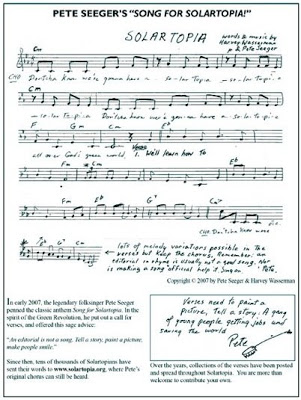 PETE SEEGER'S "SONG FOR SOLARTOPIA!"
SOLARTOPIA
words & music by
Harvey Wasserman
& Pete Seeger
Cm
CHO Don'tcha know we're gonna have a - so-lar Topi - a - so-lar-topi -
so-lar-topi-a Don'tcha know we're gonna have a solartopia
F G Cm
All over God's green world 1. We'll learn how to
Verses
Eb
Cm Eb
CHO Don'tcha know
Eb G7 Cm
lots of melody variations possible in the
verses but keep the chorus. Remember: an
editorial in rhyme is usually not a good song. Nor
is making a song official help it Sung on. Pete.
Copyright © 2007 by Pete Seeger & Harvey Wasserman
In early 2007, the legendary folksinger Pete Seeger
penned the classic anthem Song for Solartopia. In the
spirit of the Green Revolution, he put out a call for
verses, and offered this sage advice:
"An editorial is not a song. Tell a story, paint a picture,
make people smile."
Since then, tens of thousands of Solartopians have
sent their words to www.solartopia.org, where Pete's
original chorus can still be heard.
Verses need to paint a
Picture, Tell a story. A gang
of young people getting jobs and
saving the world
Pete
Over the years, collections of the verses have been posted
and spread throughout Solartopia. You are more than
welcome to contribute your own.